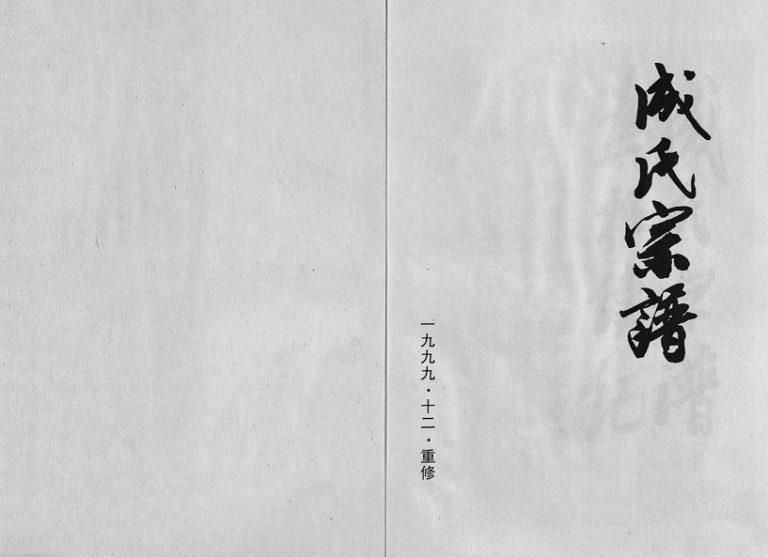 成氏宗譜
一九九九·十二·重修